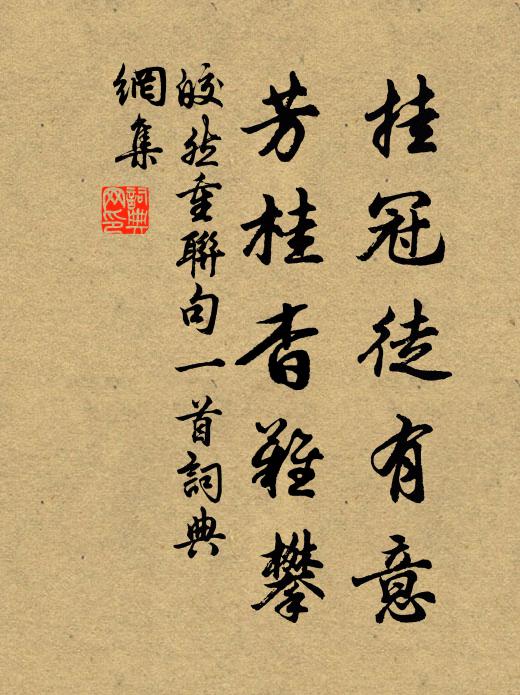 挂冠徒有意
芳桂杳難攀
皎然重聯句一首詞典
網集
詞典
网印